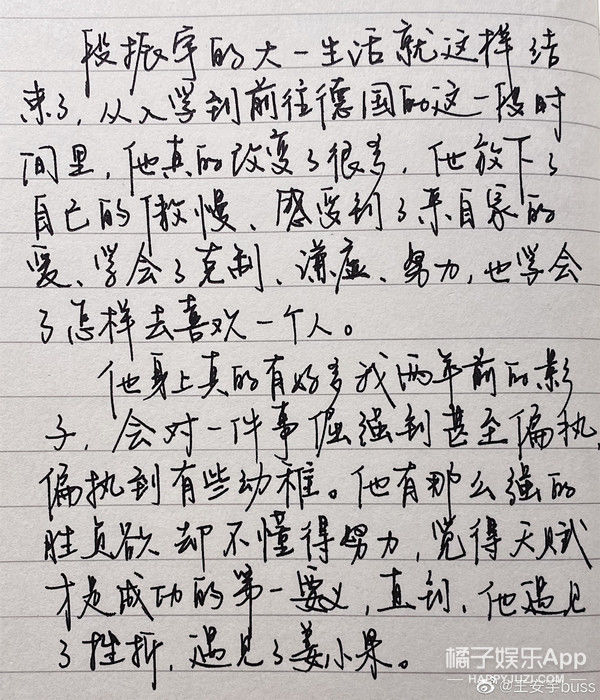 段振宇的大一生活就这样结
束了，从入学到前往德国的这一段时
间里，他真的改变了很多，他放下了
自己的傲慢、感受到了来自家的
爱、学会了克制、谦虚、努力，也学会
了怎样去喜欢一个人。
他身上真的有好多我两年前的影
子，会对一件事倔强到甚至偏执，
偏执到有些幼稚。他有那么强的
胜负欲却不懂得努力，觉得天赋
才是成功的第一要义，直到，他遇见
了挫折，遇见了姜小果。
橘子娱乐App
—HAPPYJUZI.COM—
@王安宇buss